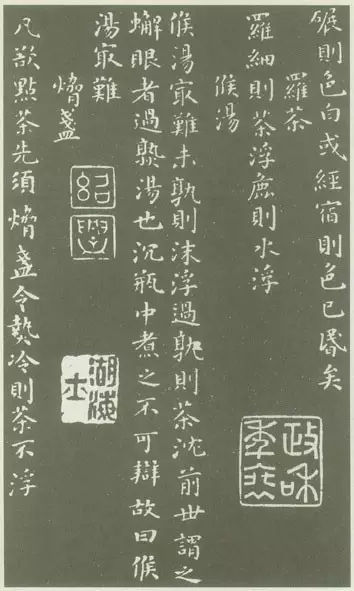 碾則色白或經宿則色已昬矣
羅茶
羅細則茶浮麁則水浮
候湯
候湯冣難未孰則沫浮過孰則茶沈前世謂之
蠏眼者過熟湯也沉瓶中煮之不可辯故曰候
湯冣難
熁盞
凡欲點茶先須熁盞令熱冷則茶不浮
政和
紹興